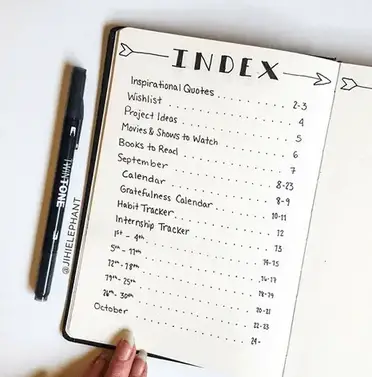 INDEX
Inspirational Quotes . . . . . . . . . 2-3
Wishlist . . . . . . . . . . . . . . . . 4
Project Ideas . . . . . . . . . . . . . 5
Movies & Shows to Watch . . . . . . . . 6
Books to Read . . . . . . . . . . . . . 7
September . . . . . . . . . . . . . . . 8-23
Calendar . . . . . . . . . . . . . . . 8-9
Gratefulness Calendar . . . . . . . . . 10-11
Habit Tracker . . . . . . . . . . . . . 12
Internship Tracker . . . . . . . . . . 13
1st - 4th . . . . . . . . . . . . . . . 14-15
5th - 11th . . . . . . . . . . . . . . 16-17
12th - 18th . . . . . . . . . . . . . . 18-19
19th - 25th . . . . . . . . . . . . . . 20-21
26th - 30th . . . . . . . . . . . . . . 22-23
October . . . . . . . . . . . . . . . . 24-
@JIHIELEPHANT